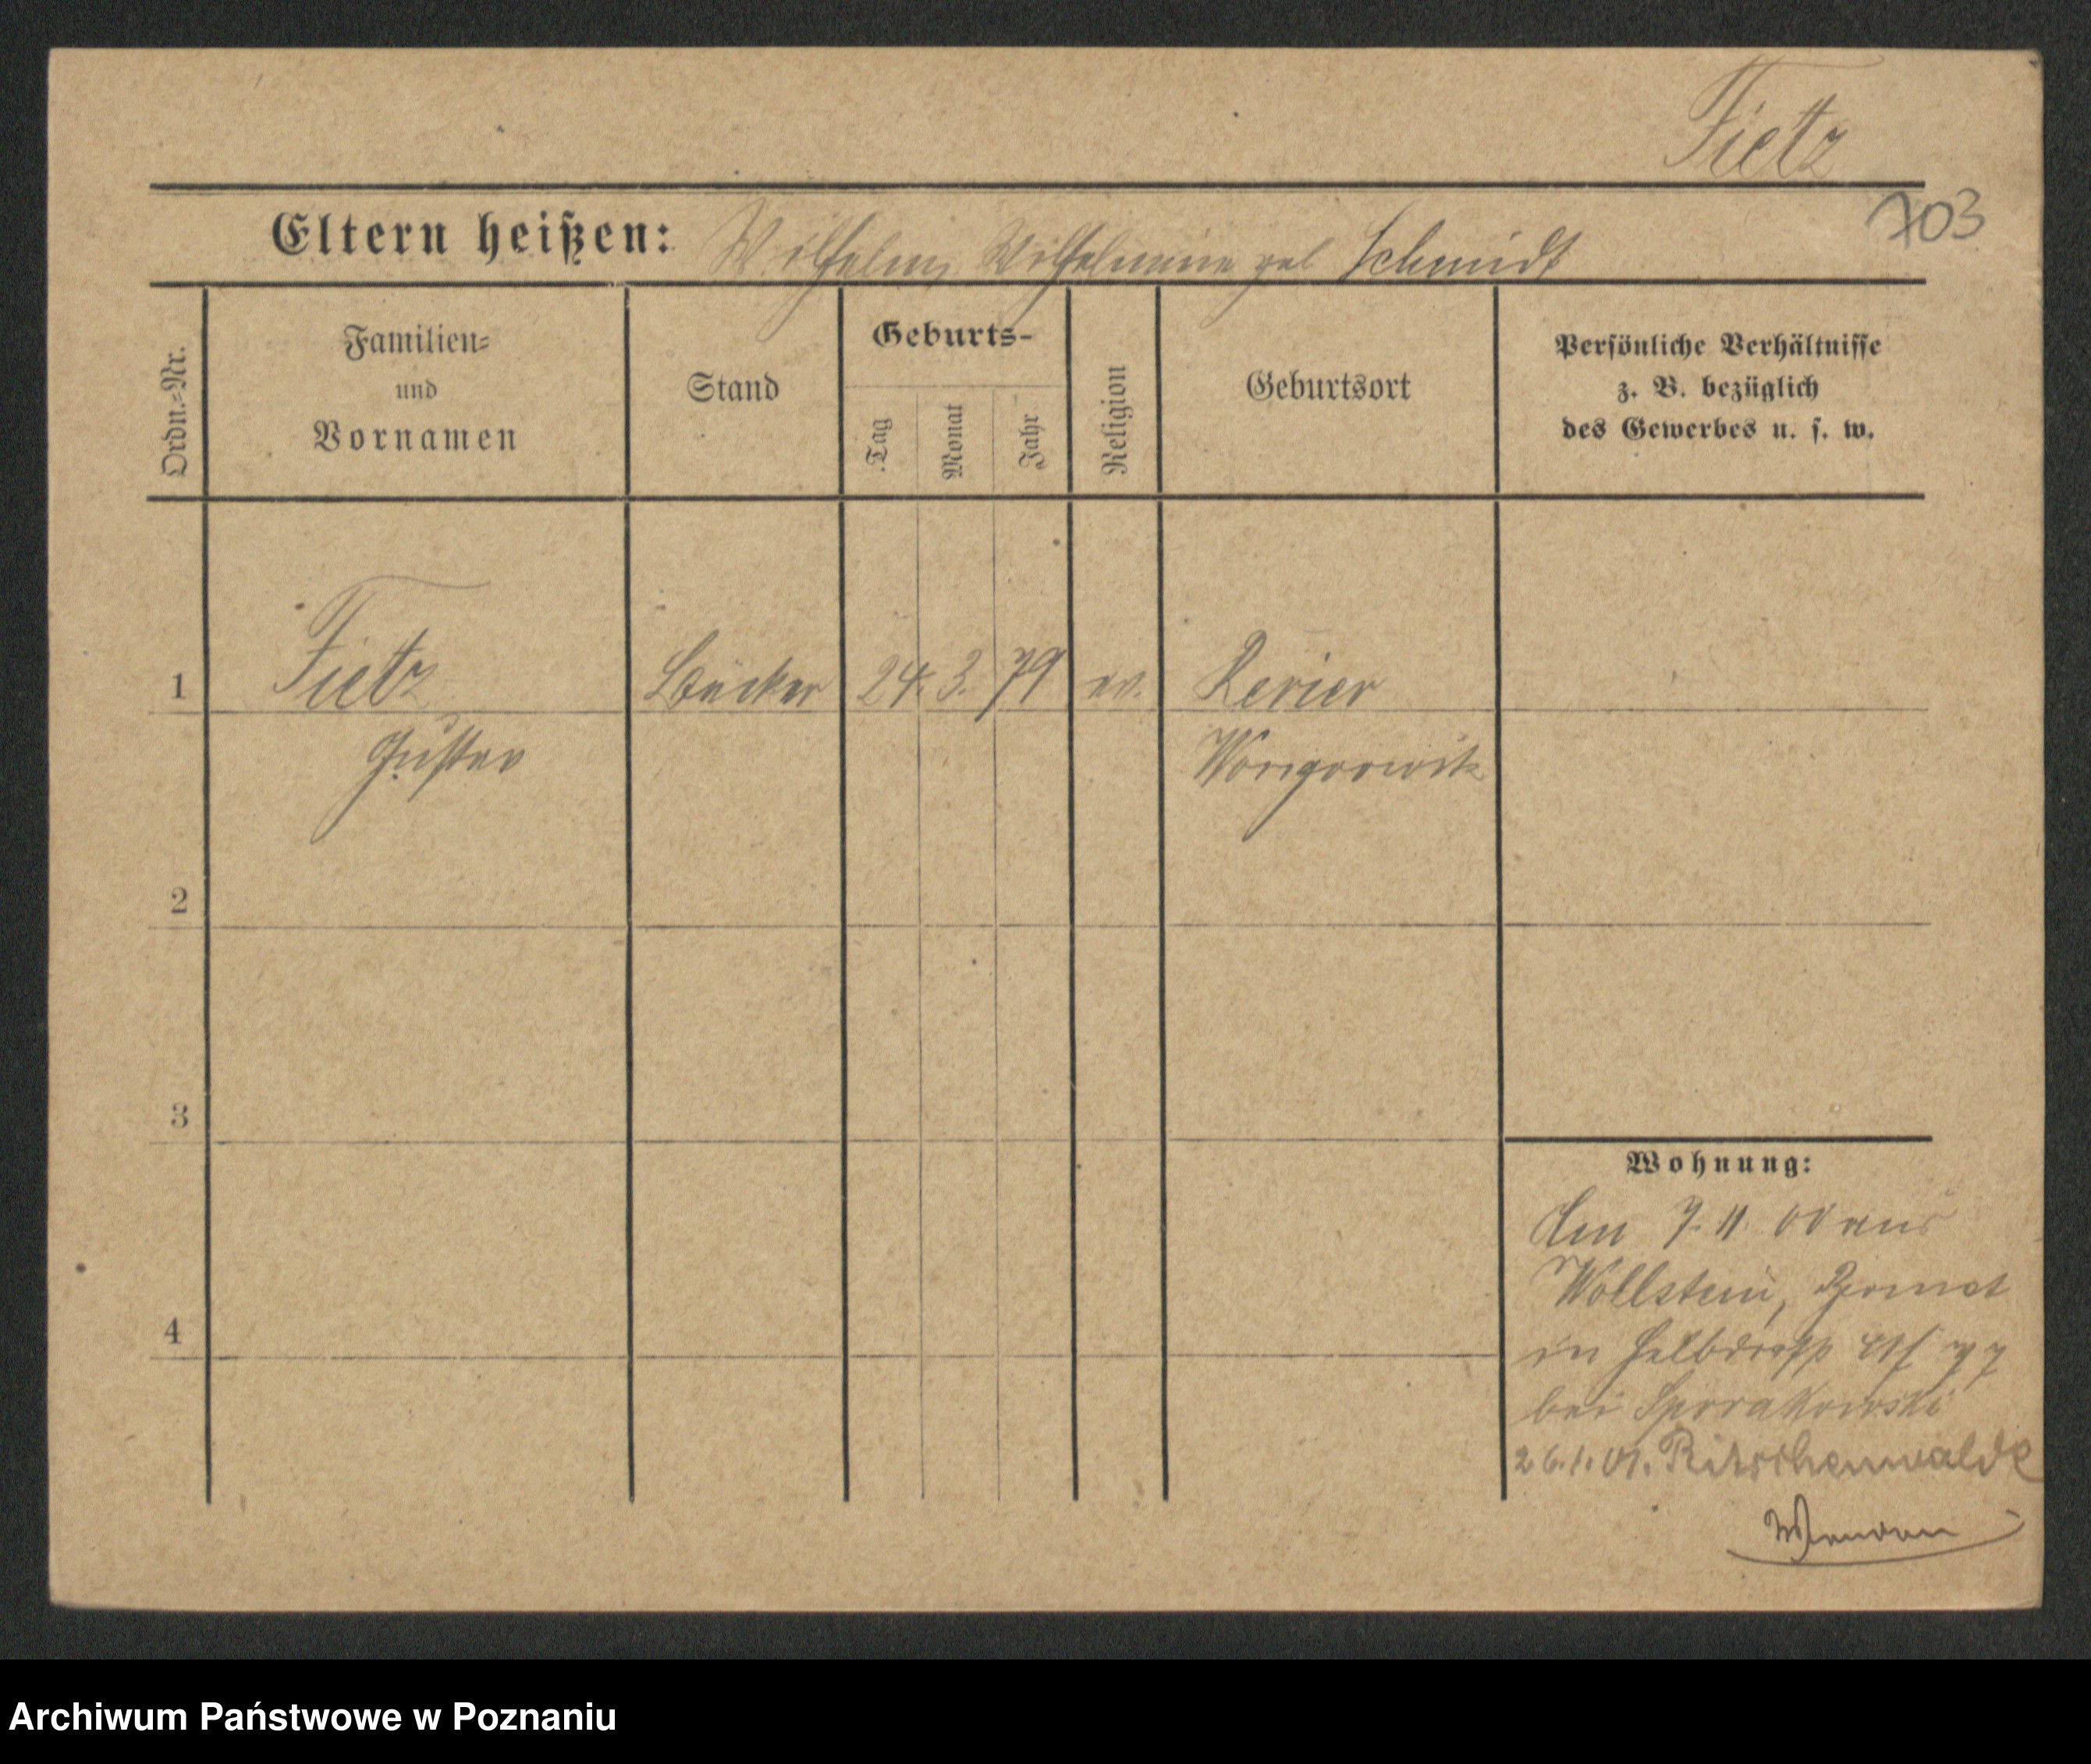 Fietz
703
Eltern heißen: Wilhelm, Wilhelmine geb Schmidt
Ordn.-Nr.
Familien-
und
Vornamen
Stand
Geburts-
Tag
Monat
Jahr
Religion
Geburtsort
Persönliche Verhältnisse
z. B. bezüglich
des Gewerbes u. s. w.
1 Fietz Bäcker 24. 3. 79 ev. Revier
Gustav Wongrowitz
2
3
4
Wohnung:
Am 7. 11. 00 aus
Wollstein,
in
bei
26.1.01. Ritschenwalde
Archiwum Państwowe w Poznaniu